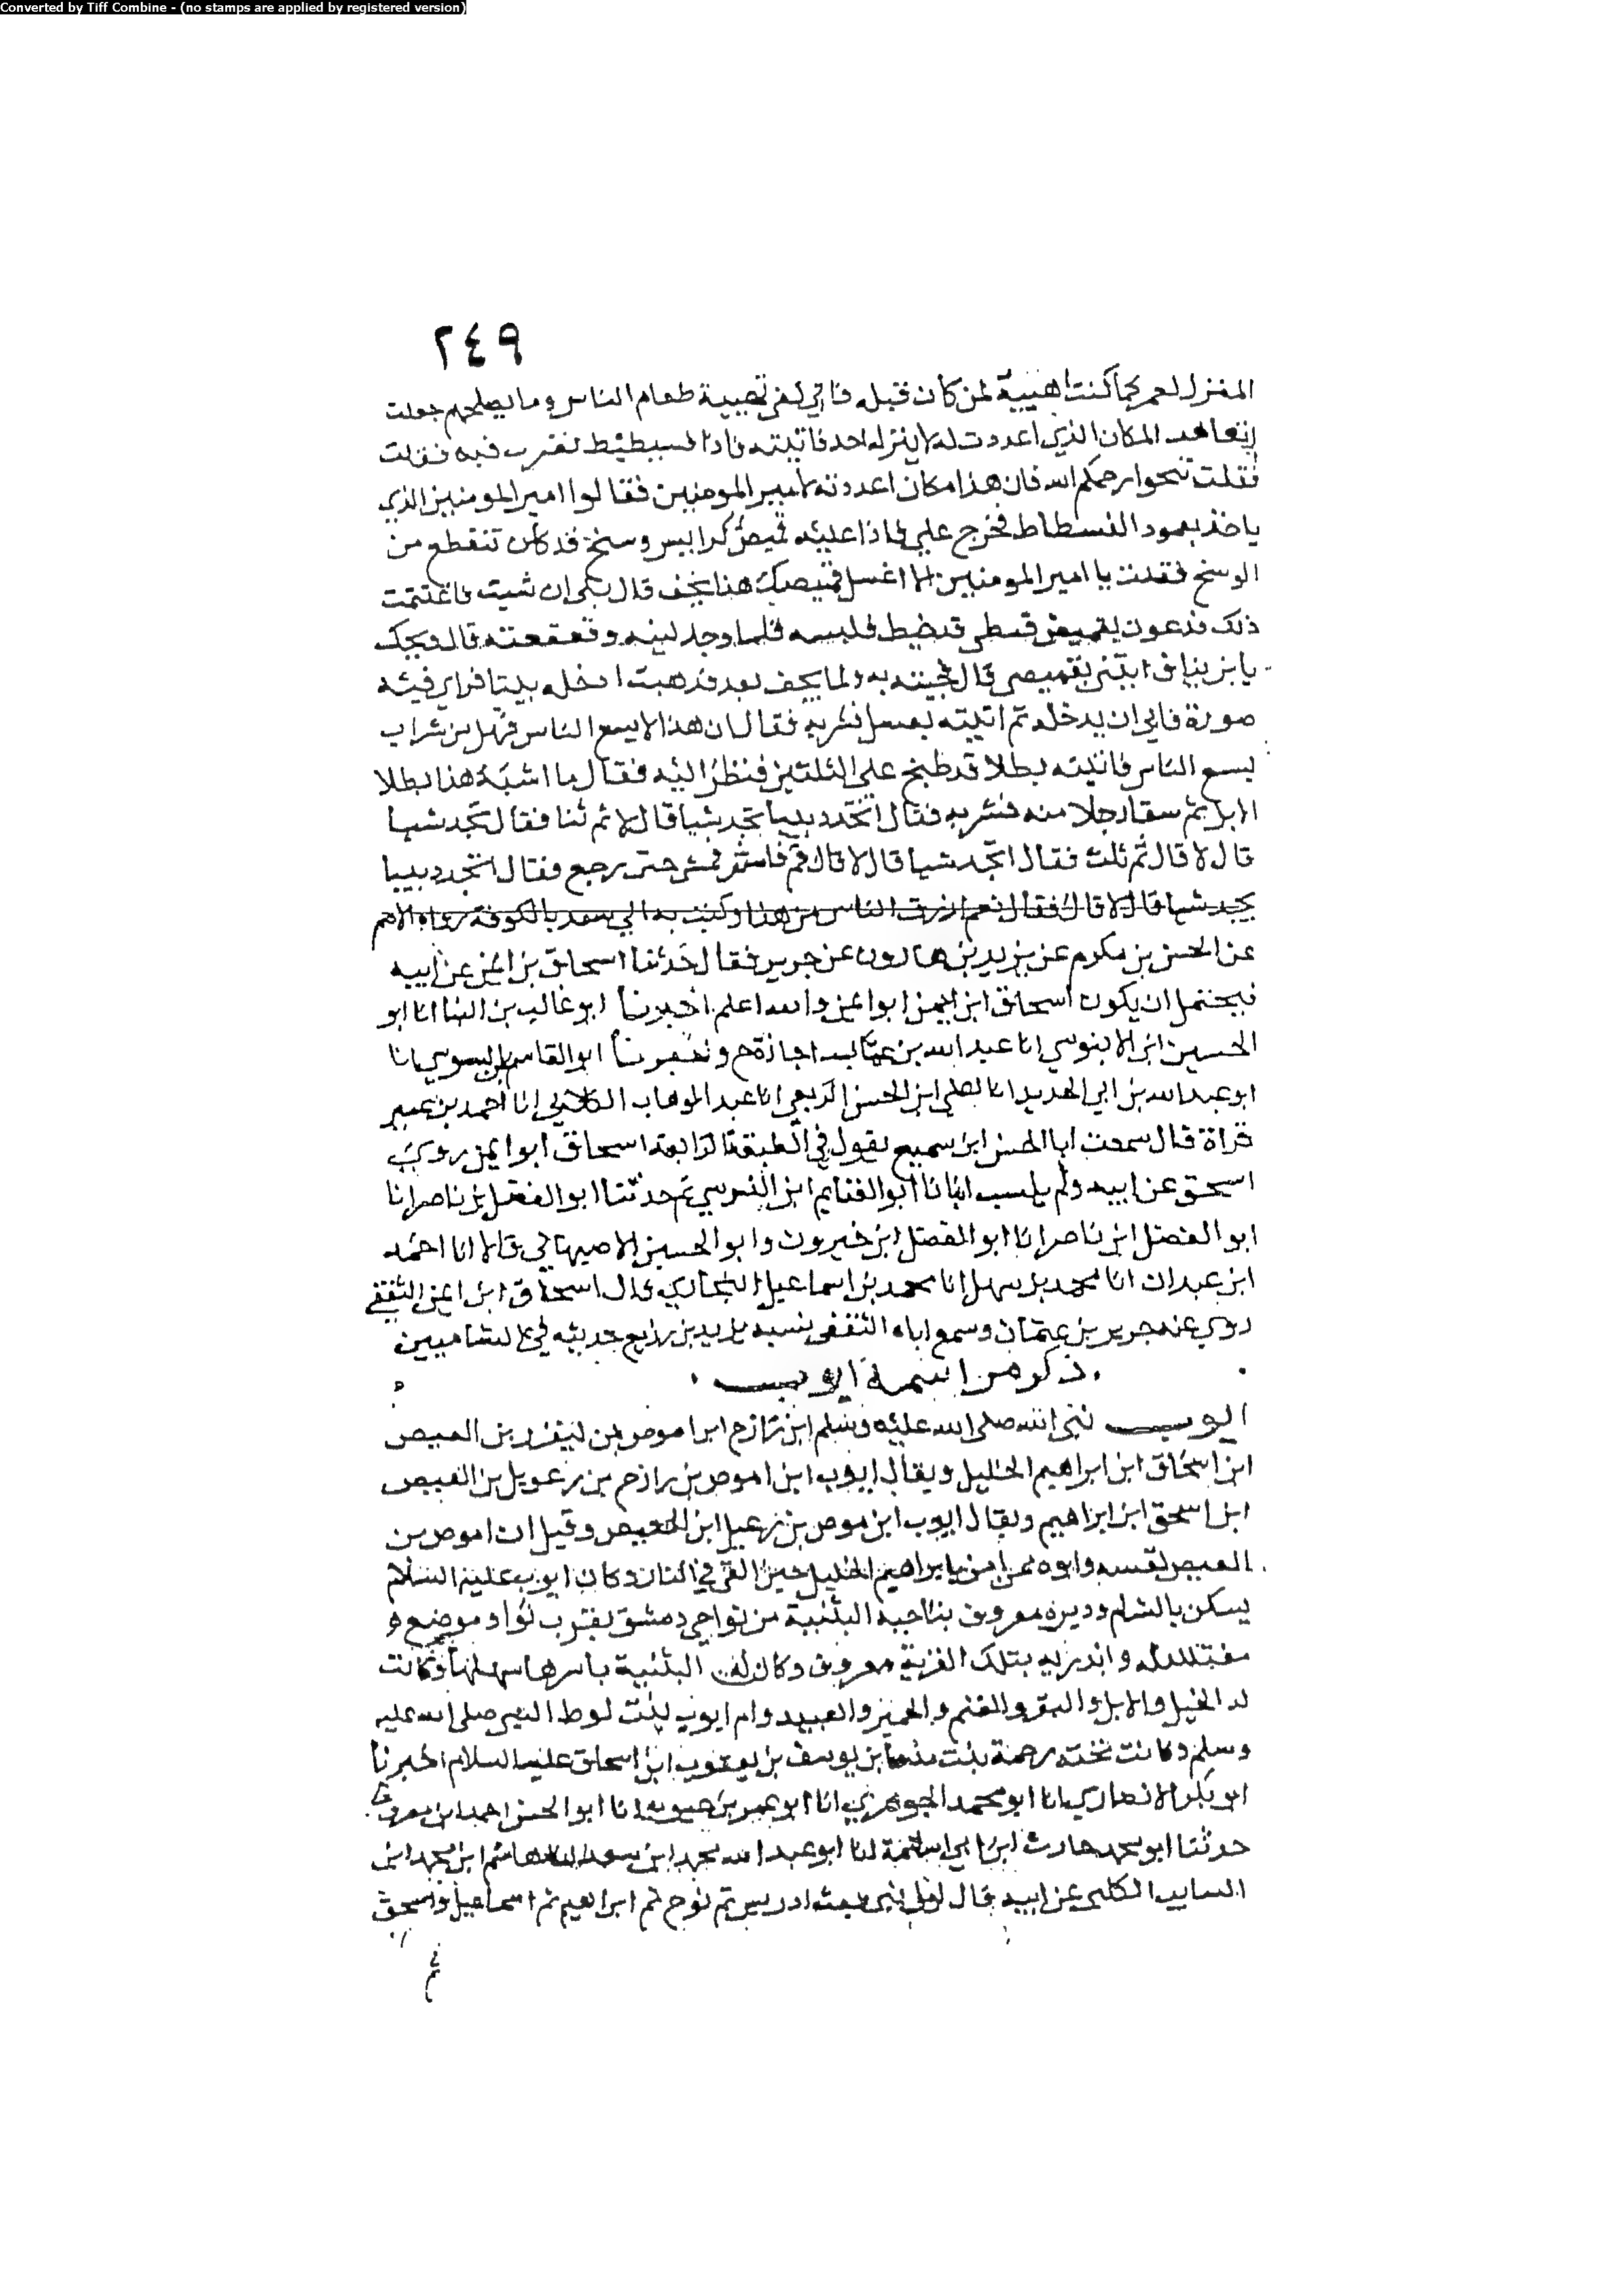 Converted by Tiff Combine - (no stamps are applied by registered version)
٢٤٩
المنزل لعمر كما كنت اهييه لمن كان قبله فاني لفي تهيية طعام الناس وما يصلحهم جعلت
اتعاهد المكان الذي اعددت له لا ينزله احد فاتيته فاذا فسيطيط يضرب فيه فقلت
فقلت تنحوا رحمكم الله فان هذا مكان اعددته لامير المومنين فقالوا امير المومنين الذي
ياخذ بعمود الفسطاط فخرج علي فاذا عليه قميص كرابيس وسخ قد كان تنقطع من
الوسخ فقلت يا امير المومنين الا اغسل قميصك هذا يجف قال بلى ان شيت فاغتنمت
ذلك فدعوت بقميص قبطي فلبسه فلما وجد لينه وقعقعته قال ويحك
يابن ايتني بقميصي قال فجيته به ولما يجف بعد فذهبت ادخله بيتا فراى فيه
صورة فابى ان يدخله ثم اتيته بعسل فشربه فقال ان هذا لا يسع الناس فهل من شراب
يسع الناس فاتيته بطلا قد طبخ على الثلثين فنظر اليه فقال ما اشبه هذا بطلا
الابل ثم سقا رجلا منه فشربه فقال اتجد دبيبا تجد شيا قال لا ثم ثنا فقال تجد شيا
قال لا قال ثم ثلث فقال اتجد شيا قال لا قال قم فامش فمشى حتى رجع فقال اتجد دبيبا
تجد شيا قال لا قال فقال نعم ارزق الناس من هذا وكتب به الى سعد بالكوفة رواه الاصم
عن الحسن بن مكرم عن يزيد بن هارون عن جرير فقال حدثنا اسحاق بن ايمن عن ابيه
فيحتمل ان يكون اسحاق ابن ايمن ابو ايمن والله اعلم اخبرنا ابو غالب بن البنا انا ابو
الحسين ابن الابنوسي انا عبد الله بن عتاب اجازة ح واخبرنا ابو القاسم السوسي انا
ابو عبد الله بن ابي الحديد انا علي ابن الحسن الربعي انا عبد الوهاب الكلابي انا احمد بن عمير
قراة قال سمعت ابا الحسن ابن سميع يقول في الطبقة الرابعة اسحاق ابو ايمن روى
اسحق عن ابيه ولم ينسب انبانا ابو الغنايم ابن النرسي ثم حدثنا ابو الفضل بن ناصر انا
ابو الفضل ابن ناصر انا ابو الفضل ابن خيرون وابو الحسين الاصبهاني قالا انا احمد
ابن عبدان انا محمد بن سهل انا محمد بن اسماعيل البخاري قال اسحاق ابن ايمن الثقفي
روى عنه جرير بن عثمان وسمع اباه الثقفي نسبه يزيد بن زريع حديثه في الشاميين
ذكر من اسمه ايوب
ايوب نبي الله صلى الله عليه وسلم ابن رازح ابن اموص بن ليفزر بن العيص
ابن اسحاق ابن ابراهيم الخليل ويقال ايوب ابن اموص بن رازح بن رعويل بن العيص
ابن اسحق ابن ابراهيم ويقال ايوب ابن موص بن رعيل ابن العيص وقيل ان اموص بن
العيص نفسه وابوه ممن امن بابراهيم الخليل حين القي في النار وكان ايوب عليه السلام
يسكن بالشام وديره معروف بناحية البثنية من نواحي دمشق بقرب نوا وموضع
مغتسله بتلك القرية معروف وكان له البثنية باسرها سهلها وكانت
له الخيل والابل والبقر والغنم والحمير والعبيد وام ايوب بنت لوط النبي صلى الله عليه
وسلم وكانت تحته رحمة بنت منشا بن يوسف بن يعقوب ابن اسحاق عليه السلام اخبرنا
ابو بكر الانصاري انا ابو محمد الجوهري انا ابو عمر بن حيويه انا ابو الحسن احمد ابن معروف
حدثنا ابو محمد حارث ابن ابي اسامة انا ابو عبد الله محمد ابن سعد انا هاشم ابن محمد ابن
السايب الكلبي عن ابيه قال اول نبي بعث ادريس ثم نوح ثم ابراهيم ثم اسماعيل واسحق
ثم